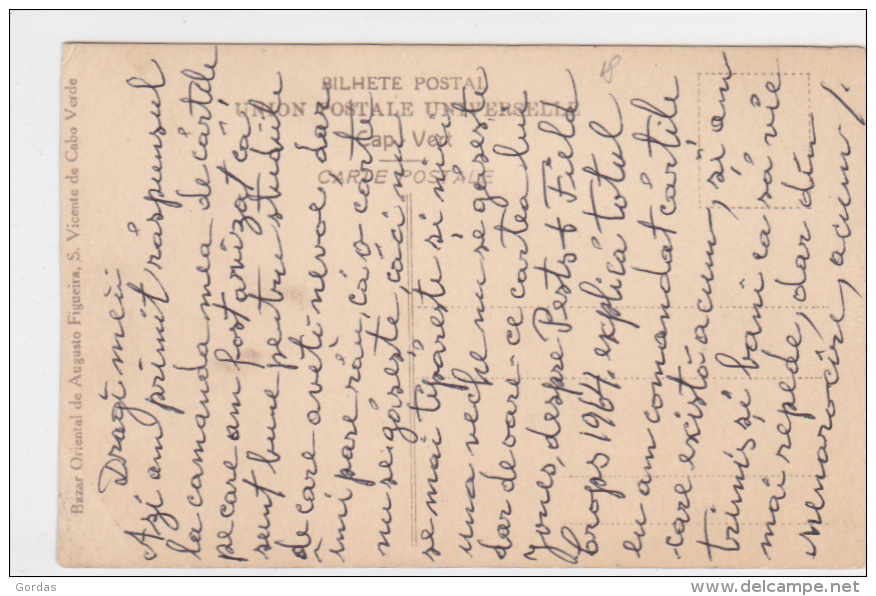 BILHETE POSTAL
UNION POSTALE UNIVERSELLE
Cap. Vert
CARTE POSTALE
Bazar Oriental de Augusto Figueira, S. Vicente de Cabo Verde
18
Dragii mei
Azi am primit răspunsul
la comanda mea de cărtile
pe care am fost avizat că
sunt bune pentru studiile
de care aveti nevoe, dar
îmi pare rău, că o carte
nu se găseste, căci nu
se mai tipăreste si nici
una veche nu se găseste
dar deoare-ce cartea lui
Jones, despre Pests of Field
Crops 1964. explică totul
eu am comandat cărtile
care există acum, si am
trimis si bani ca să vie
mai repede, dar din
nenorocire, acum /.
Gordas
www.delcampe.net